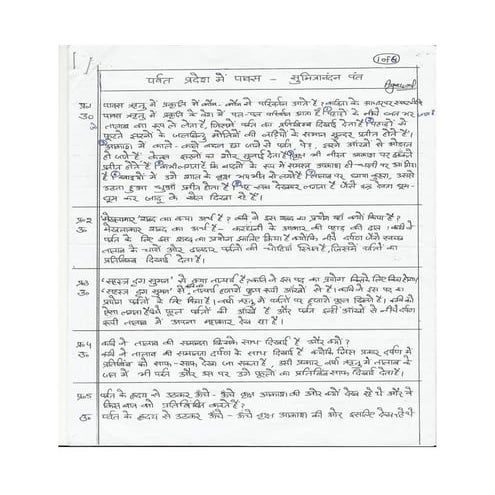 1 of 6
पर्वत प्रदेश में पावस - सुमित्रानंदन पंत
प्र०1 पावस ऋतु में प्रकृति में कौन-कौन से परिवर्तन आते हैं? कविता के आधार पर स्पष्ट कीजिए
उ० पावस ऋतु में प्रकृति के वेश में पल-पल परिवर्तन आता है। पहाड़ों के नीचे जल भर
तालाब का रूप ले लेता है, जिसमें पर्वत का प्रतिबिंब दिखाई देता है। पहाड़ों से
फूटते झरनों के जलबिन्दु मोतियों की लड़ियों के समान सुन्दर प्रतीत होते हैं।
आकाश में काले-काले बादल छा जाने से पर्वत, पेड़, इनसे आँखों से ओझल
हो जाते हैं। केवल झरनों का शोर सुनाई देता है।
प्रतीत होते हैं। बादलों के रूप में समस्त आकाश ही धरती पर आ गिरा
है।
उठता हुआ धुआँ प्रतीत होता है। यह सब देखकर लगता है जैसे इन्द्र
कर जादू के खेल दिखा रहे हैं।
प्र०2 'मेखलाकार' शब्द का क्या अर्थ है? कवि ने इस शब्द का प्रयोग यहाँ क्यों किया है?
उ० मेखलाकार शब्द का अर्थ है- करधनी के आकार की पहाड़ की ढाल। कवि ने
पर्वत के लिए इस शब्द का प्रयोग इसलिए किया है क्योंकि नीचे दर्पण जैसे स्वच्छ
तालाब के चारों ओर पर्वत की दिखाई, जिसमें पर्वतों का
प्रतिबिम्ब दिखाई देता है।
प्र०3 'सहस्त्र दृग सुमन' से क्या तात्पर्य है? कवि ने इस पद का प्रयोग किसके लिए किया होगा?
उ० 'सहस्त्र दृग सुमन' से तात्पर्य हजारों पुष्प रूपी आँखों से है। कवि ने इस पद का
प्रयोग पर्वतों के लिए किया है। वर्षा ऋतु में पर्वतों पर हजारों फूल खिले हैं। कवि को
ऐसा लगता है जैसे फूल पर्वतों की आँखें हैं और पर्वत इन्हीं आँखों से नीचे दर्पण
रूपी तालाब में अपना महाकार देख रहा है।
प्र०4 कवि ने तालाब की समानता किसके साथ दिखाई है और क्यों?
उ० कवि ने तालाब की समानता दर्पण के साथ दिखाई है क्योंकि जिस प्रकार दर्पण में
प्रतिबिंब को साफ-साफ देखा जा सकता है, उसी प्रकार वर्षा ऋतु में तालाब के
जल में भी पर्वत और उस पर उगे फूलों का प्रतिबिंब साफ दिखाई देता है।
प्र०5 पर्वत के हृदय से उठकर ऊँचे-ऊँचे वृक्ष आकाश की ओर क्यों देख रहे थे और वे
किस बात को प्रतिबिंबित करते हैं?
उ० पर्वत के हृदय से उठकर ऊँचे-ऊँचे वृक्ष आकाश की ओर इसलिए देख रहे थे